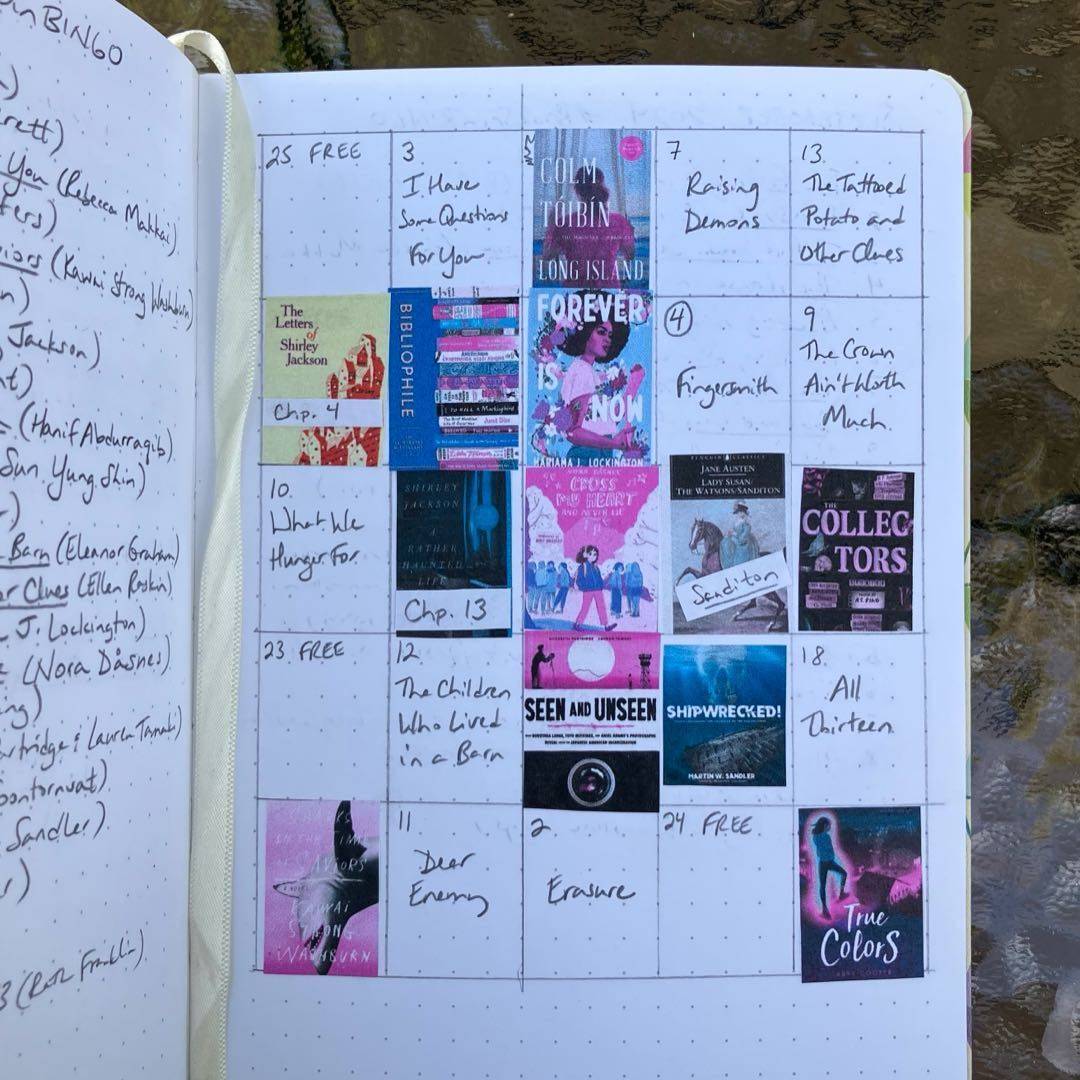 BINGO
rett)
You (Rebecca Makkai)
iors (Kawai Strong Washburn)
Jackson)
(Hanif Abdurraqib)
Sun Yung Shin)
Barn (Eleanor Graham)
Clues (Ellen Raskin)
J. Lockington)
(Nora Dåsnes)
artridge & Lauren Tamaki)
oontornvat)
Sandler)
3 (Ruth Franklin)
25 FREE
3
I Have
Some Questions
For You
COLM
TÓIBÍN
LONG ISLAND
7
Raising
Demons
13
The Tattooed
Potato and
Other Clues
The
Letters
of
Shirley
Jackson
Chp. 4
BIBLIOPHILE
FOREVER
IS
NOW
MARIAMA J. LOCKINGTON
4
Fingersmith
9
The Crown
Ain't Worth
Much
10
What We
Hunger For
SHIRLEY
JACKSON
A
RATHER
HAUNTED
LIFE
Chp. 13
CROSS
MY HEART
AND NEVER LIE
PENGUIN CLASSICS
JANE AUSTEN
LADY SUSAN/
THE WATSONS/SANDITON
Sanditon
THE
COLLEC
TORS
23 FREE
12
The Children
Who Lived
in a Barn
SEEN AND UNSEEN
SHIPWRECKED!
MARTIN W. SANDLER
18
All
Thirteen
SHARKS
IN THE TIME
OF SAVIORS
A NOVEL
KAWAI
STRONG
WASHBURN
11
Dear
Enemy
2
Erasure
24 FREE
True
Colors
ABBY COOPER